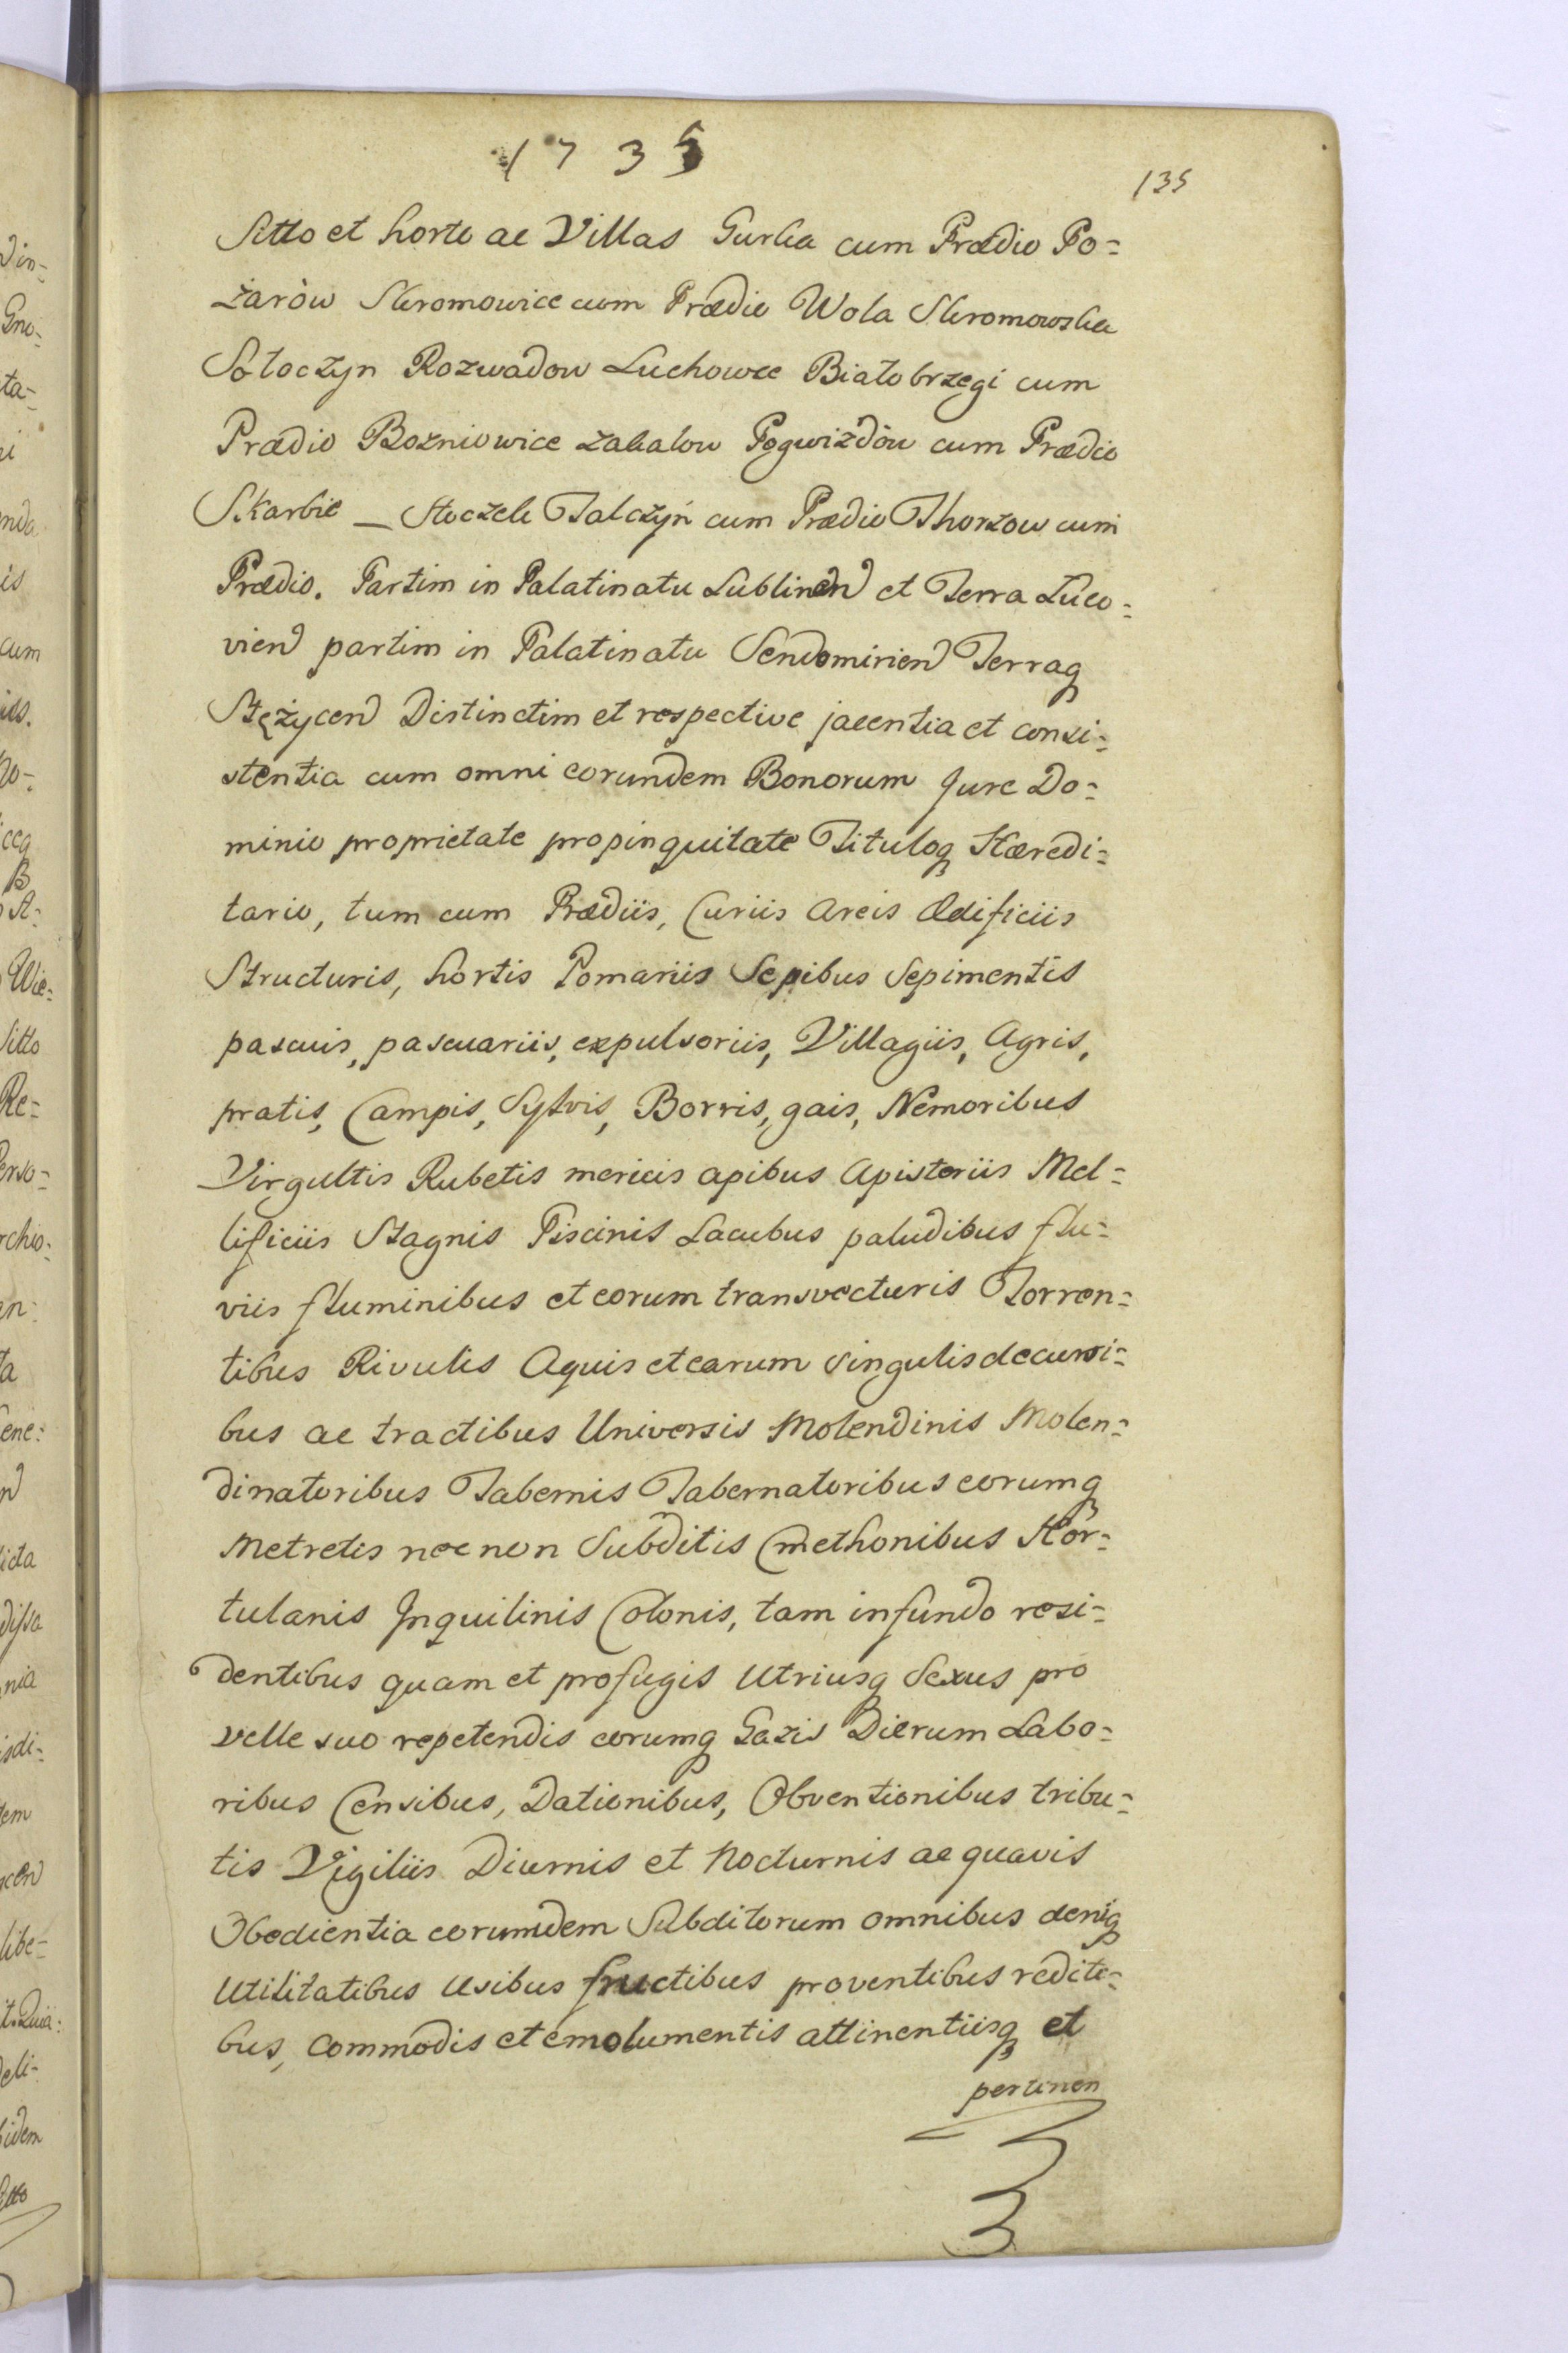 1735
135
Sitto et horto ac Villas Gurka cum Prædio Po=
żaròw Skromowice cum Prædio Wola Skromowska
Sołoczyn Rozwadow Luchowce Białobrzegi cum
Prædio Bozniowice zakalow Pogwizdòw cum Prædio
Skarbic _ Stoczek Talczyń cum Prædio Thorzow cum
Prædio. Partim in Palatinatu Lublinen et Terra Luco=
vien partim in Palatinatu Sendomirien Terraq
Stężycen Distinctim et respective jacentia et consi=
stentia cum omni eorundem Bonorum Jure Do=
minio proprietate propinquitate Tituloq Hæredi=
tario, tum cum Prædiis, Curiis Areis Ædificiis
Structuris, hortis Pomariis Sepibus Sepimentis
pascuis, pascuariis, expulsoriis, Villagiis, Agris,
pratis, Campis, Sylvis, Borris, gais, Nemoribus
Virgultis Rubetis mericis apibus Apistoriis Mel=
lificiis Stagnis Piscinis Lacubus paludibus flu=
viis fluminibus et eorum transvecturis Torren=
tibus Rivulis Aquis et earum singulis decursi=
bus ac tractibus Universis Molendinis Molen=
dinatoribus Tabernis Tabernatoribus eorumq
Metretis nec non Subditis Cmethonibus Hor=
tulanis Inquilinis Colonis, tam in fundo resi=
dentibus quam et profugis Utriusq Sexus pro
velle suo repetendis eorumq Gazis Dierum Labo=
ribus Censibus, Dationibus, Obventionibus tribu=
tis Vigiliis Diurnis et Nocturnis ac quavis
Obedientia eorumdem Subditorum omnibus deniq
Utilitatibus Usibus fructibus proventibus rediti=
bus, Commodis et emolumentis attinentiisq et
pertinen